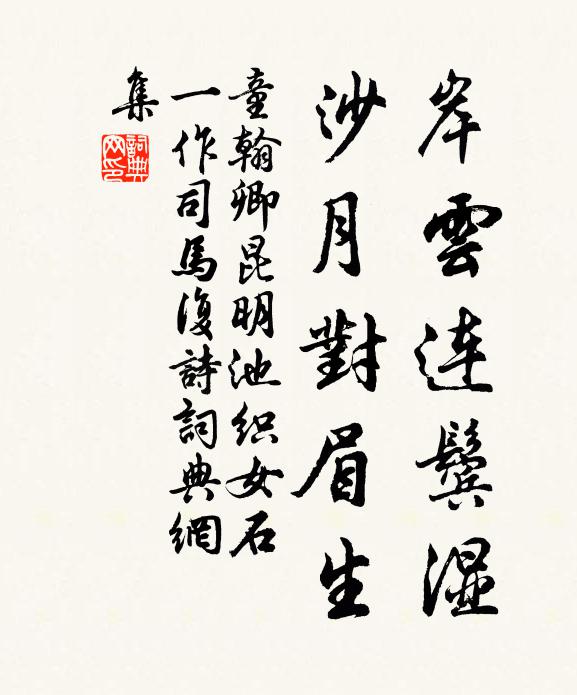 岸雲连鬓湿
沙月對眉生
童翰卿昆明池织女石
一作司馬復詩詞典網
集
詞典網印